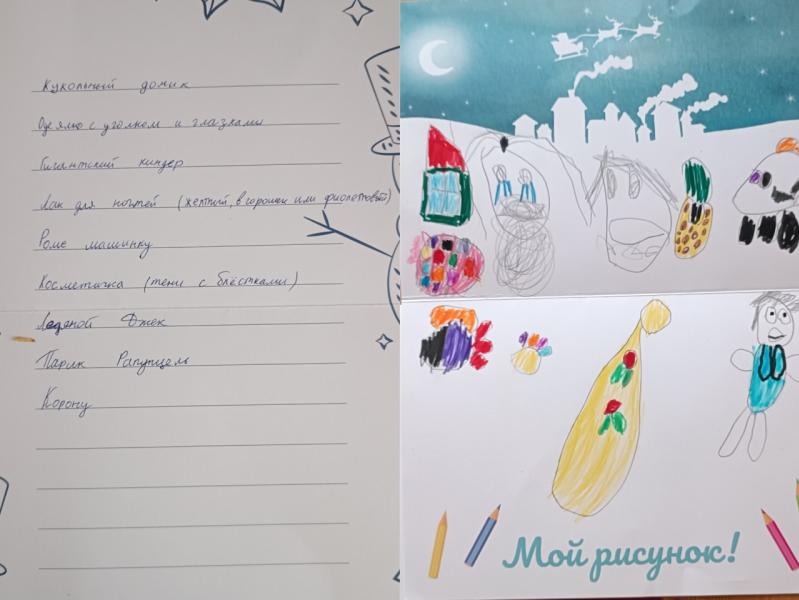 Кукольный домик
Одеяло с уголком и глазками
Гигантский киндер
Лак для ногтей (желтый, в горошек или фиолетовый)
Роме машинку
Косметичка (тени с блёстками)
Ледяной Джек
Парик Рапунцель
Корону
Мой рисунок!